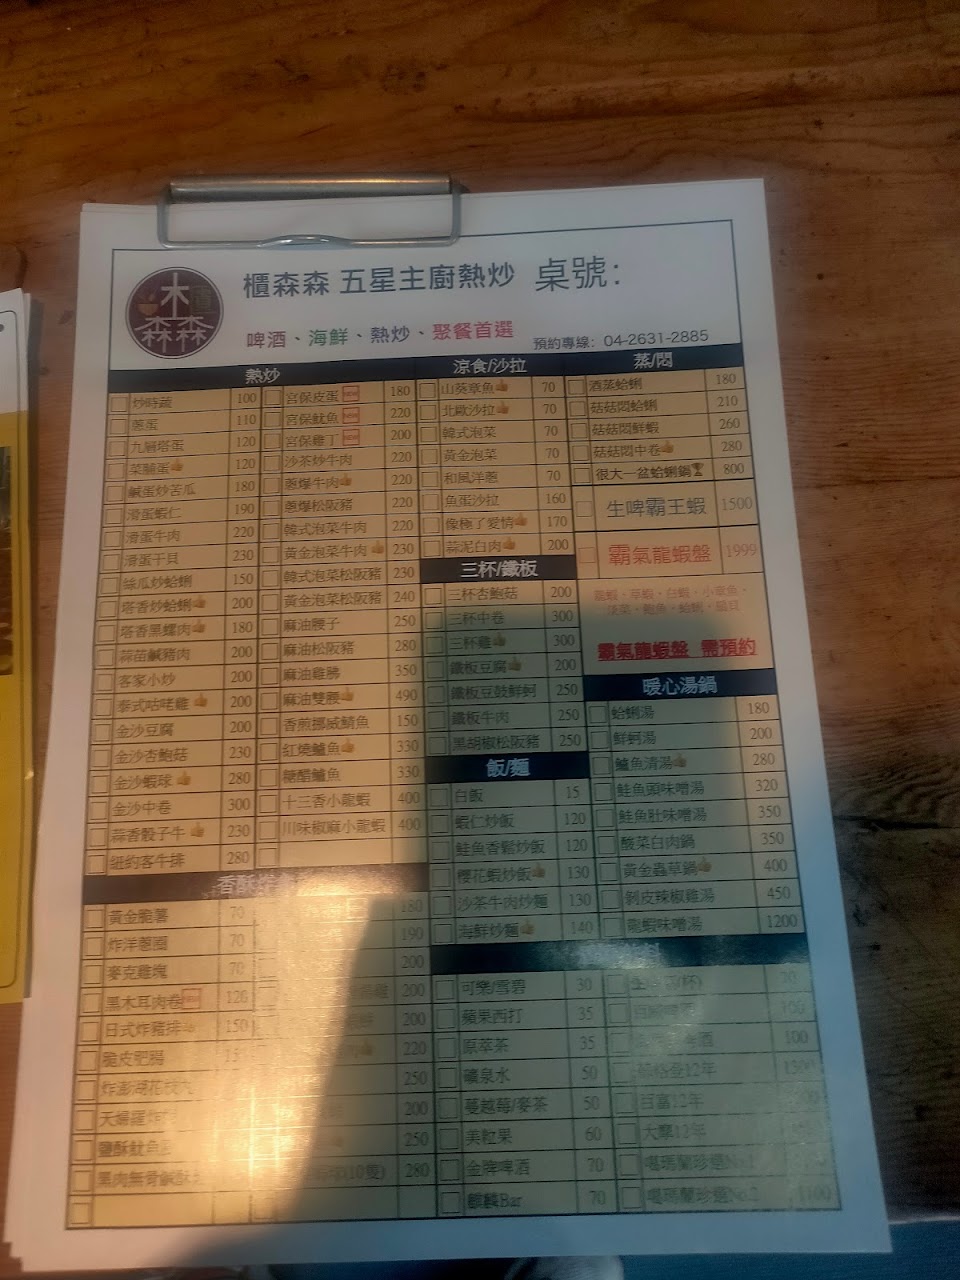 櫃森森 五星主廚熱炒 桌號：
啤酒、海鮮、熱炒、聚餐首選
預約專線：04-2631-2885
熱炒
炒時蔬 100
蔥蛋 110
九層塔蛋 120
菜脯蛋 120
鹹蛋炒苦瓜 180
滑蛋蝦仁 190
滑蛋牛肉 220
滑蛋干貝 230
絲瓜炒蛤蜊 150
塔香炒蛤蜊 200
塔香黑螺肉 180
蒜苗鹹豬肉 200
客家小炒 200
泰式咕咾雞 200
金沙豆腐 200
金沙杏鮑菇 230
金沙蝦球 280
金沙中卷 300
蒜香骰子牛 230
紐約客牛排 280
宮保皮蛋 NEW 180
宮保魷魚 NEW 220
宮保雞丁 NEW 200
沙茶炒牛肉 220
蔥爆牛肉 220
蔥爆松阪豬 220
韓式泡菜牛肉 220
黃金泡菜牛肉 230
韓式泡菜松阪豬 230
黃金泡菜松阪豬 240
麻油腰子 250
麻油松阪豬 280
麻油雞胇 350
麻油雙腰 490
香煎挪威鯖魚 150
紅燒鱸魚 330
糖醋鱸魚 330
十三香小龍蝦 400
川味椒麻小龍蝦 400
涼食/沙拉
山葵章魚 70
北歐沙拉 70
韓式泡菜 70
黃金泡菜 70
和風洋蔥 70
魚蛋沙拉 160
像極了愛情 170
蒜泥白肉 200
三杯/鐵板
三杯杏鮑菇 200
三杯中卷 300
三杯雞 300
鐵板豆腐 200
鐵板豆鼓鮮蚵 250
鐵板牛肉 250
黑胡椒松阪豬 250
飯/麵
白飯 15
蝦仁炒飯 120
鮭魚香鬆炒飯 120
櫻花蝦炒飯 130
沙茶牛肉炒麵 130
海鮮炒麵 140
蒸/悶
酒蒸蛤蜊 180
菇菇悶蛤蜊 210
菇菇悶鮮蝦 260
菇菇悶中卷 280
很大一盆蛤蜊鍋 800
生啤霸王蝦 1500
霸氣龍蝦盤 1999
龍蝦、草蝦、白蝦、小章魚、
淡菜、鮑魚、蛤蜊、扇貝
霸氣龍蝦盤 需預約
暖心湯鍋
蛤蜊湯 180
鮮蚵湯 200
鱸魚清湯 280
鮭魚頭味噌湯 320
鮭魚肚味噌湯 350
酸菜白肉鍋 350
黃金蟲草鍋 400
剝皮辣椒雞湯 450
龍蝦味噌湯 1200
香酥
黃金脆薯 70
炸洋蔥圈 70
麥克雞塊 70
黑木耳肉卷 NEW 120
日式炸豬排 150
脆皮肥腸
炸澎湖花枝丸
天婦羅炸
鹽酥魷魚
180
190
200
200
200
220
250
200
250
(10隻) 280
可樂/雪碧 30
蘋果西打 35
原萃茶 35
礦泉水 50
蔓越莓/麥茶 50
美粒果 60
金牌啤酒 70
麒麟Bar 70
(杯)
酒 100
12年
百富12年
大摩12年
噶瑪蘭珍選No.1
噶瑪蘭珍選No.2 1100